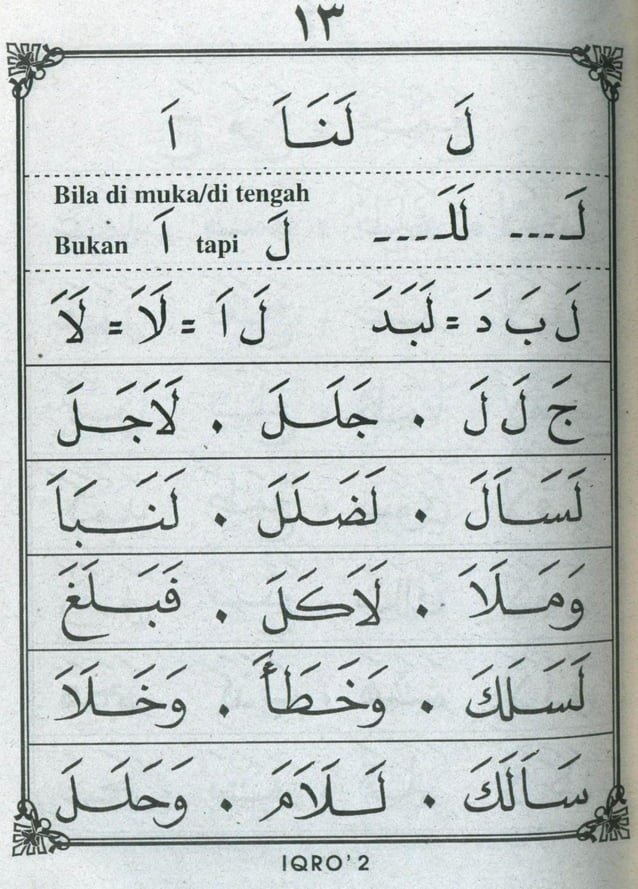 ١٣
لَ لَنَاَ اَ
Bila di muka/di tengah
لَـ--- لَلَـ---
Bukan اَ tapi لَ
لَ بَ دَ = لَبَدَ لَ اَ = لَاَ = لَاَ
جَ لَ لَ . جَلَـلَ . لَاَجَـلَ
لَسَـاَلَ . لَضَـلَلَ . لَنَـبَاَ
وَمَـلَاَ . لَاَكَلَ . فَبَـلَغَ
لَسَـلَكَ . وَخَـطَأَ . وَخَـلَاَ
سَـاَلَكَ . لَـلَاَمَ . وَحَلَـلَ
IQRO' 2